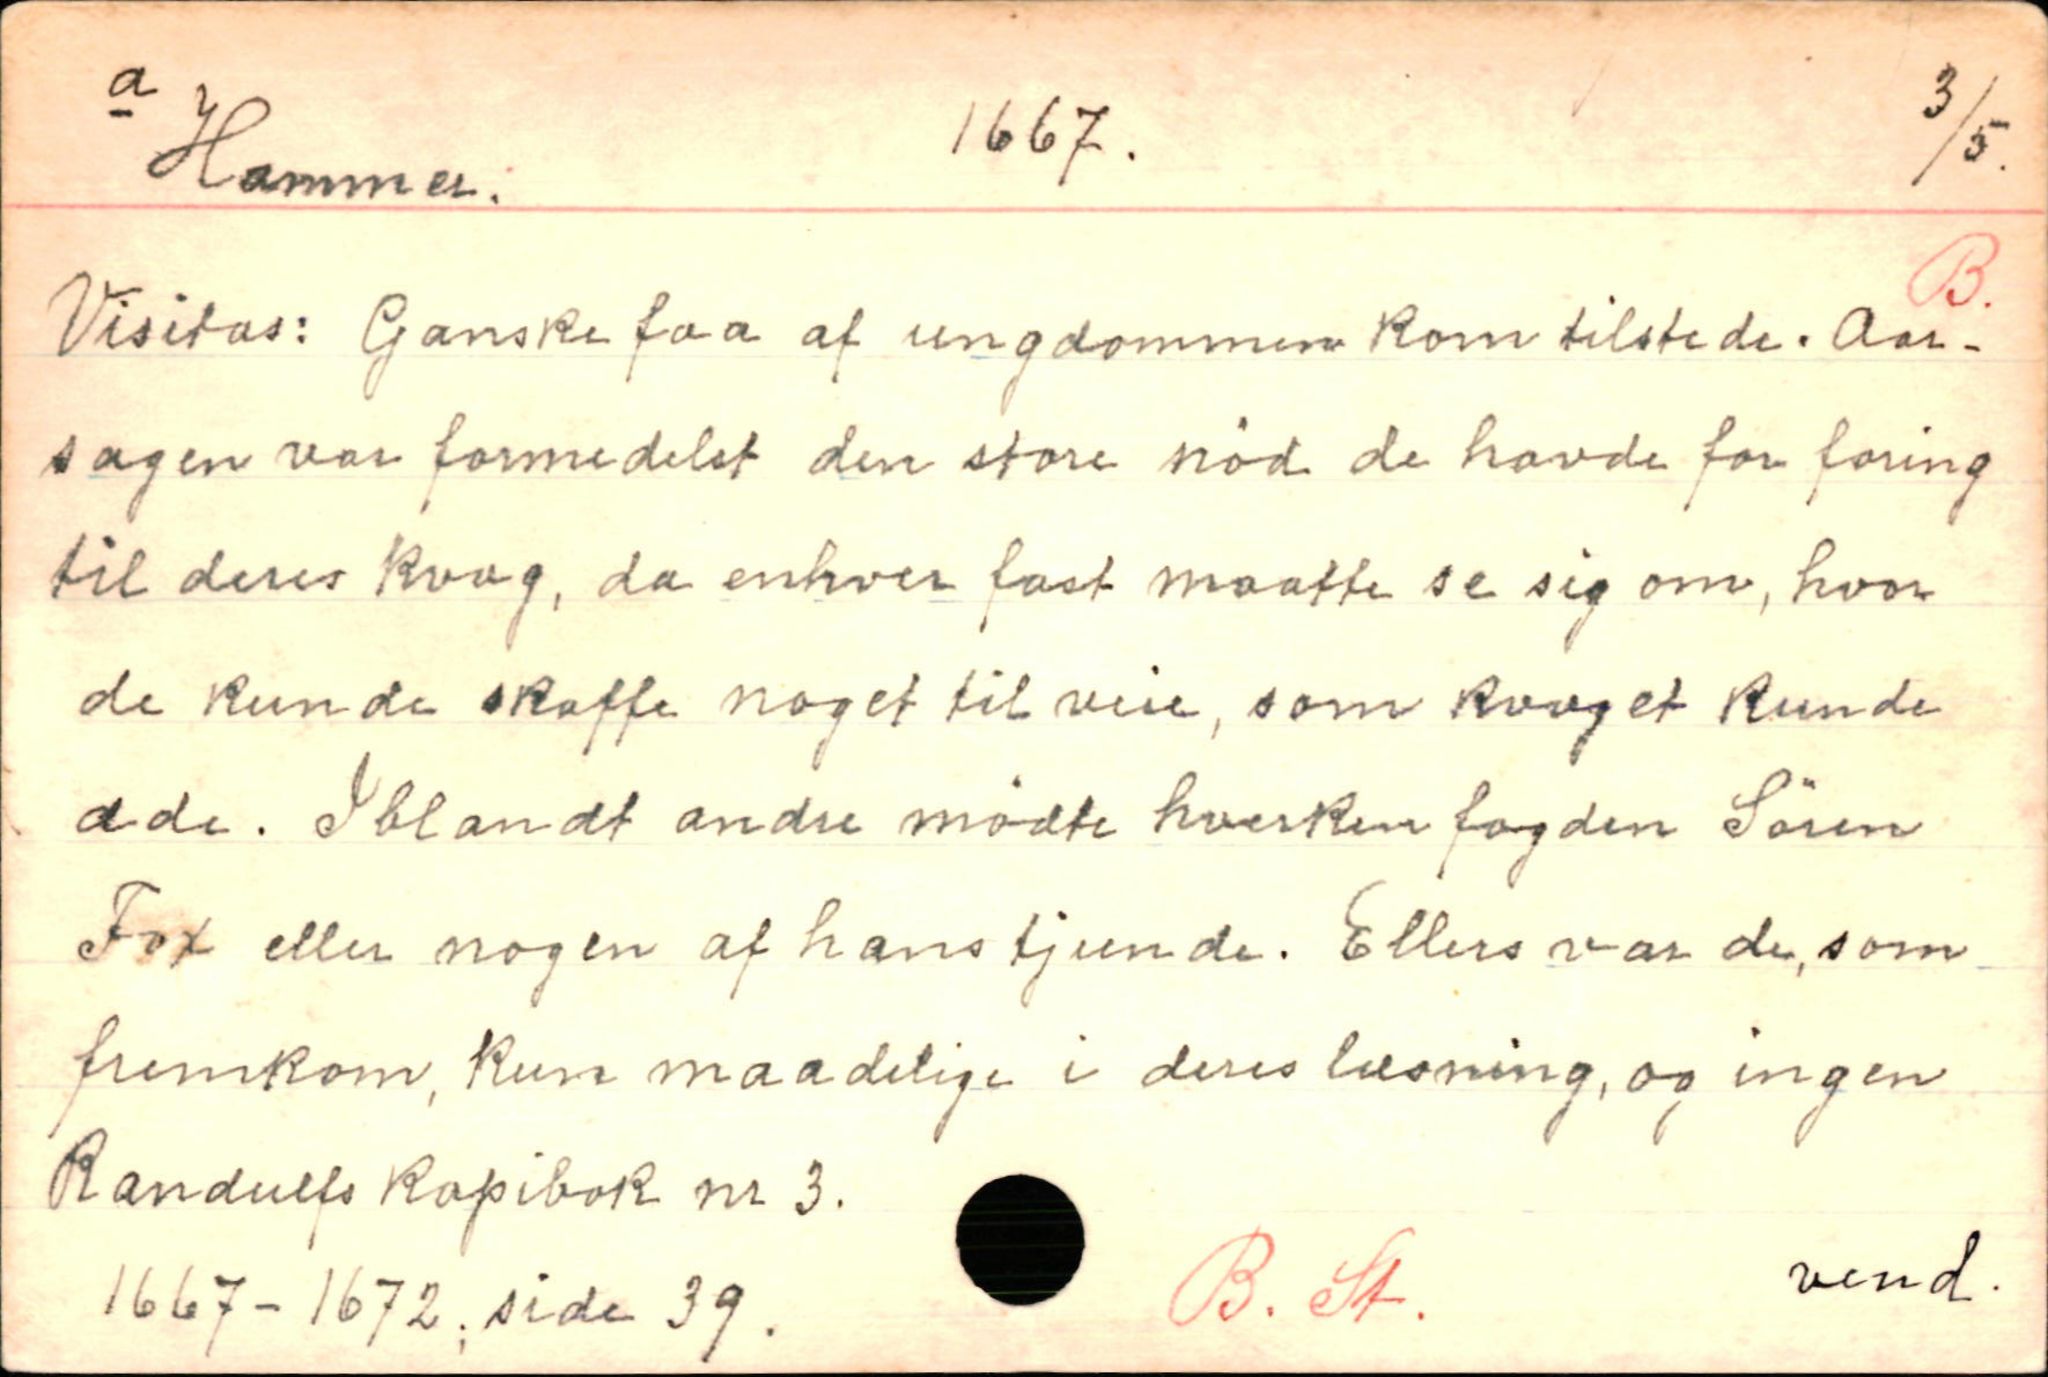 a
Hammer. 1667. 3/5.
B.
Visitas: Ganske faa af ungdommen kom tilstede. Aar-
sagen var formedelst den store nöd de havde for foring
til deres kvæg, da enhver fast maatte se sig om, hvor
de kunde skaffe noget til veie, som kvæget kunde
æde. Iblandt andre mödte hverken fogden Sören
Fox eller nogen af hans tjeende. Ellers var de, som
fremkom, kun maadelige i deres læsning, og ingen
Randulfs kopibok nr 3.
1667-1672, side 39. B. St. vend.